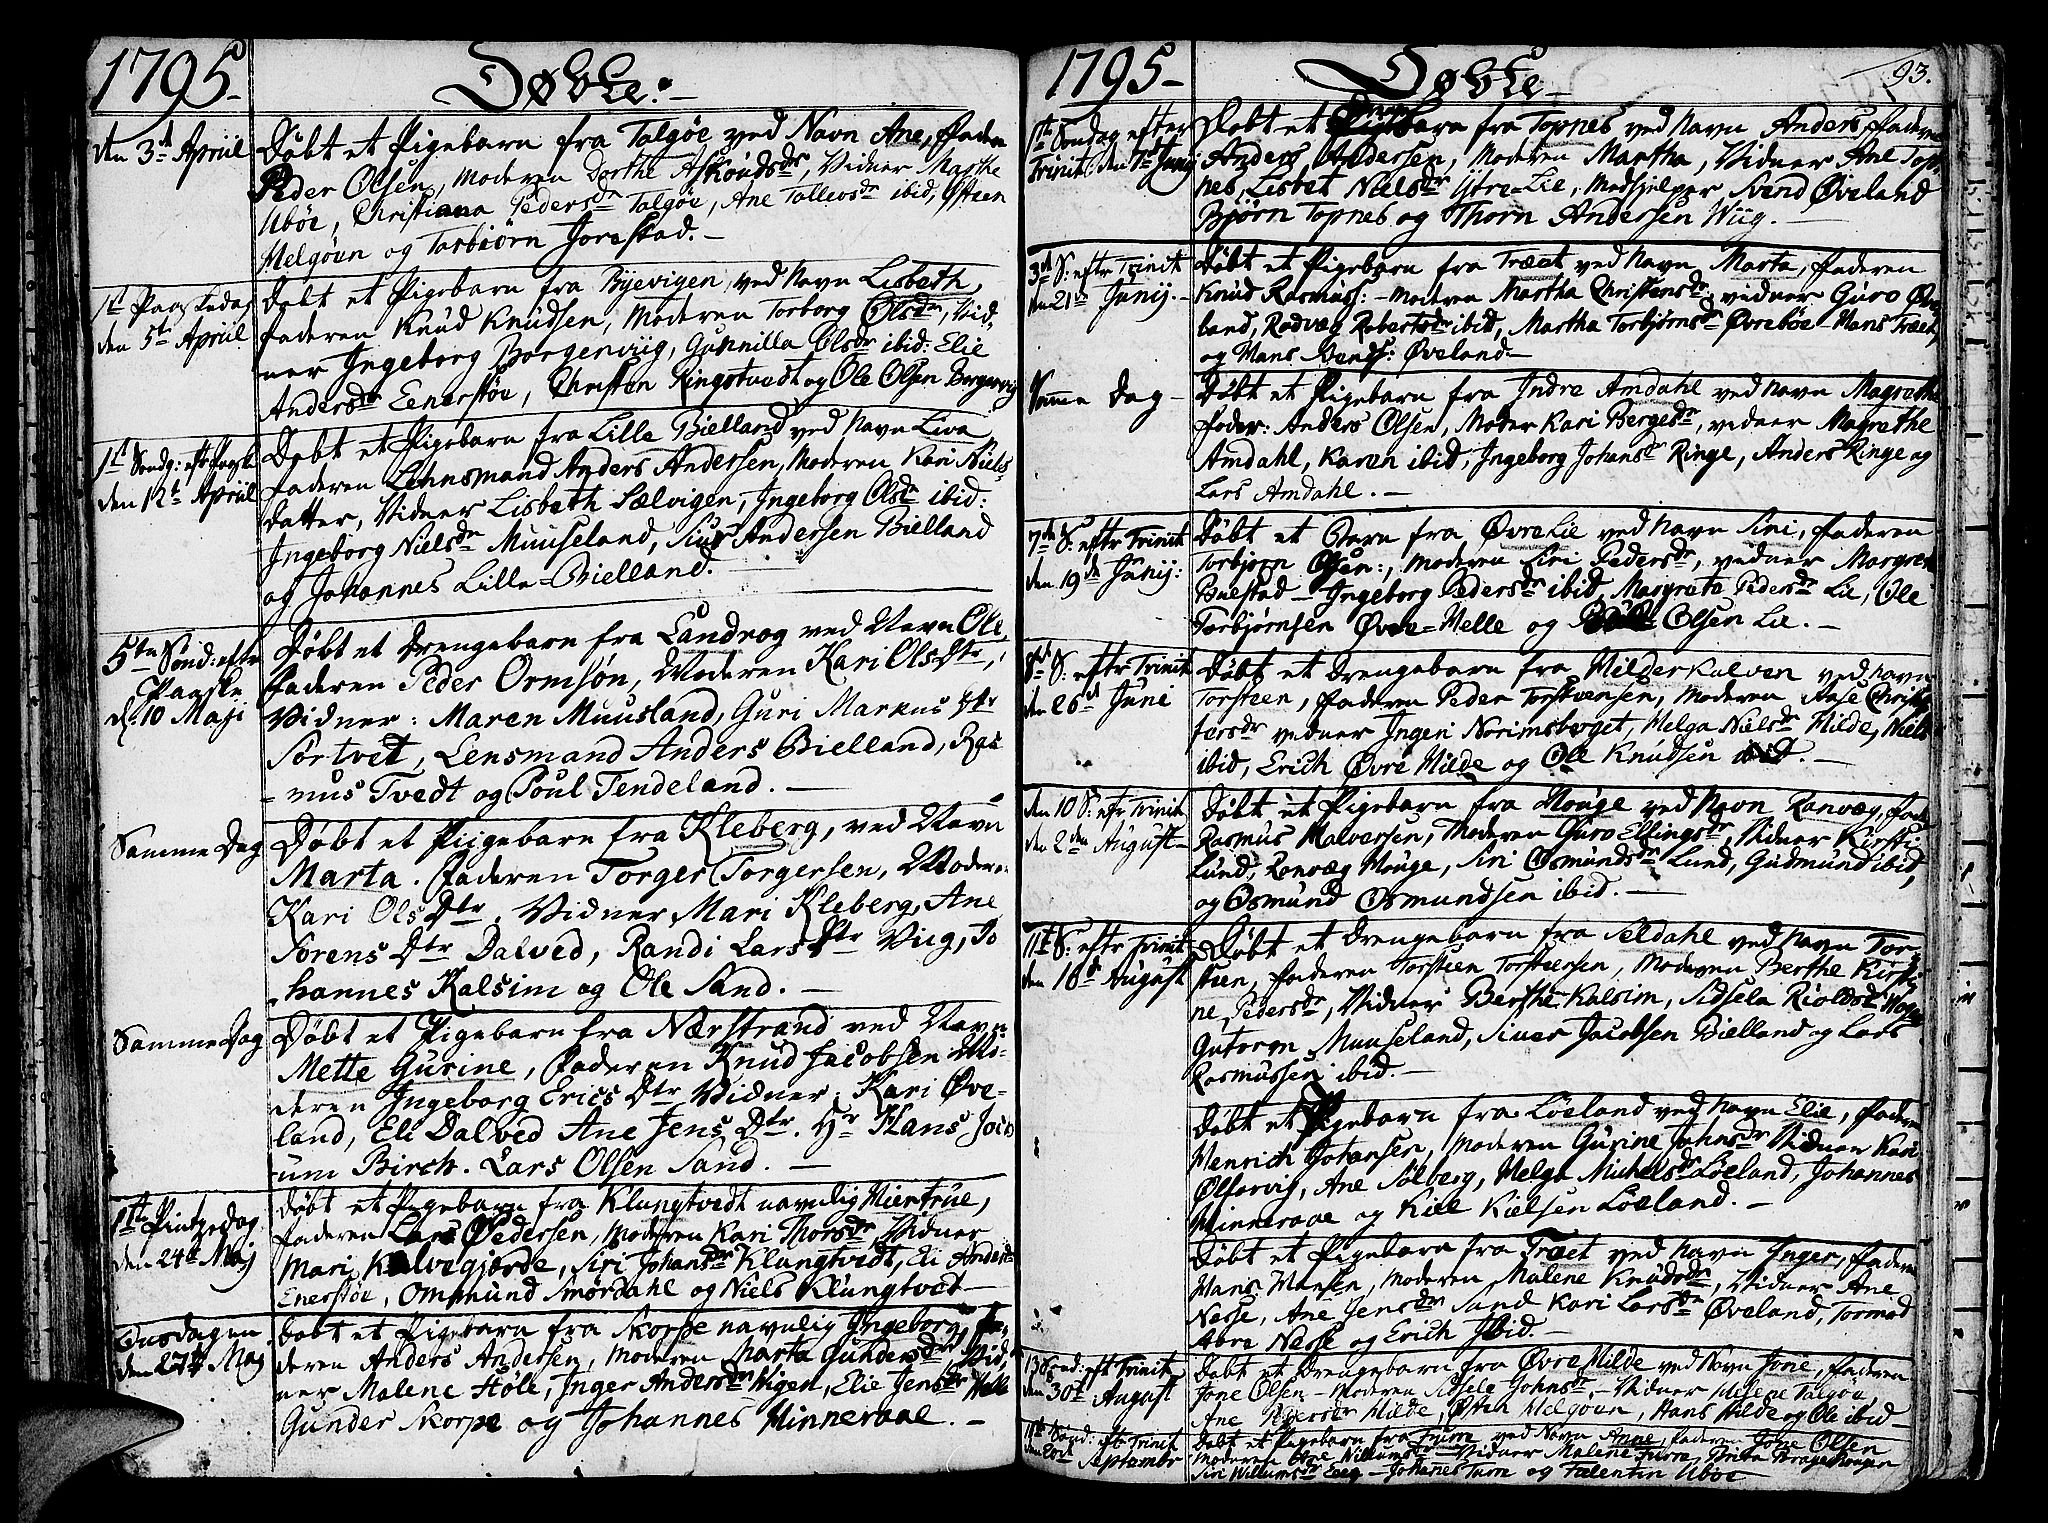 1795. Døbte.
den 3d Apriil Døbt et Pigebarn fra Talgøe ved Navn Ane, Faderen
Peder Olsen, Moderen Dorthe Askoudsdr, Vidner Marthe
Uboe, Christiana Pedersdr Talgøe, Ane Tallevsdr ibid, Østeen
Helgøen og Torbiørn Jorestad.
1st Paaskedag Døbt et Pigebarn fra Byevigen, ved Navn Lisbeth,
den 5te Apriil Faderen Knud Knudsen, Moderen Torborg Olsdr, Vid-
ner Ingeborg Borgenviig, Gunnilla Olsdr ibid: Elie
Andersdr Eenerstøe, Christen Ringstvedt og Ole Olsen Borgenvig
1st Søndg: eftr Paaske Døbt et Pigebarn fra Lille Bielland ved Navn Liva
den 12te Apriil Faderen Lehnsmand Anders Andersen, Moderen Kari Niels
datter, Vidner Lisbeth Sælvigen, Ingeborg Olsdr ibid:
Ingeborg Nielsdr Muuseland, Siur Andersen Bielland
og Johannes Lille-Bielland.
5te Sønd: efter Døbt et Drengebarn fra Landraag ved Navn Ole,
Paaske Faderen Peder Ormsøn, Moderen Kari Olsdtr,
d. 10 Maji Vidner: Maren Muusland, Guri Markus dtr
Sortvet, Lensmand Anders Bielland, Ras
mus Tvedt og Poul Tendeland.
Samme Dag Døbt et Piigebarn fra Kleberg, ved Navn
Marta. Faderen Torger Torgersen, Moder.
Kari Ols Dtr. Vidner, Mari Kleberg, Ane
Sørens Dtr Dalved, Randi Lars Dtr Viig, Jo
hannes Kalsim og Ole Sand.
Samme Dag Døbt et Pigebarn fra Nærstrand ved Navn
Mette Gurine, Faderen Knud Jacobsen Mo-
deren Ingeborg Erics Dtr Vidner: Kari Øve-
land, Eli Dalved Ane Jens Dtr. Hr Hans Joch
um Birch. Lars Olsen Sand.
1st Pintzedag Døbt et Pigebarn fra Klungtvedt navnlig Miertrue,
den 24de Maj Faderen Lars Pedersen, Moderen Kari Thorsdr, Vidner
Mari Kalvegjærde, Siri Johansdr Klungtvedt, Eli Andersdr
Enerstøe, Ommund Smørdahl og Niels Klungtvedt
Onsdagen Døbt et Pigebarn fra Skorpe navnlig Ingeborg, Fa-
den 27de Maj deren Anders Andersen, Moderen Marta Gundersdr, Vid,
ner Malene Høle, Inger Andersdr Vigen, Elie Jensdr Helle
Gunder Skorpe og Johannes Hinneraae.
1795 Døbte 93.
1te Søndag efter Døbt et barn fra Topnes ved Navn Anders, Faderen
Trinit. den 7de Junij Anders Andersen, Moderen Martha, Vidner Ane Top-
nes, Lisbet Nielsdr Ytre-Lie, Medhjelper Svend Øveland
Bjørn Topnes og Thorn Andersen Wiig.
3de S: eftr Trinit Døbt et Pigebarn fra Træet ved Navn Marta, Faderen
den 21de Junij. Knud Rasmuss: Moderen Martha Christensdr vidner Guro Øve
land, Rodvæg Robertsdr ibid, Martha Torbjørnsdr Øvrebøe Hans Træet,
og Hans Svends: Øveland.
Samme Dag Døbt et Pigebarn fra Indre Amdahl ved Navn Magrethe
Fader: Anders Olsen, Moder Kari Bergesdr, vidner Magrethe
Amdahl, Karen ibid, Ingeborg Johansdr Ringe, Anders Ringe og
Lars Amdahl.
7de S: eftr Trinit Døbt et Barn fra Øvre Lie ved Navn Siri, Faderen
den 19de Junij: Torbjørn Olsen:, Moderen Siri Pedersdr, vidner Margret
Buestad Ingeborg Pedersdr ibid, Magrete Pedersdr Lie, Ole
Torbjørnsen Øvre-Helle og Olsen Lie.
8de S: eftr Trinit Døbt et Drengebarn fra Hilderkalven ved Navn
den 26d Juni Torsteen, Faderen Peder Torstvensen, Moderen Aase Christo
fersdr vidner Ingeri Norimsberget, Helga Nielsdr Hilde, Niels
ibid, Erich Øvre Hilde og Ole Knudsen ibid.
den 10 S: eftr Trinit Døbt et Pigebarn fra Houge ved Navn Ranvæg, Fader
den 2den August Rasmus Halversen, Moderen Guro Ellingsdr, Vidner Kirsti
Lund, Ranvæg Houge, Siri Osmundsdr Lund, Gudmund ibid,
og Osmund Osmundsen ibid.
11te S: eftr Trinit Døbt et Drengebarn fra Seldahl ved Navn Tor-
den 16de August stien, Faderen Torsteen Torsteensen, Moderen Berthe Kirsti
ne Pedersdr, Vidner Berthe Kalsim, Sidsela Rioldsdr
Gutorm Muuseland, Siver Jacobsen Bielland og Lars
Rasmussen ibid.
Døbt et Pigebarn fra Løeland ved Navn Elie, Faderen
Henrich Johansen, Moderen Gurine Johnsdr Vidner Kari
Ølfarvig, Ane Solberg, Helga Michelsdr Løeland, Johannes
Hinneraae og Kiel Kielsen Løeland.
Døbt et Pigebarn fra Træet ved Navn Inger, Faderen
Hans Hansen, Moderen Malene Knudsdr, Vidner Ane
Nesse, Ane Jensdr Sand Kari Larsdr Øveland, Tormod
Øvre Nesse og Erich Ibid.
13 Sønd: eft Trinit Døbt et Drengebarn fra Øvre Hilde ved Navn Jone, Faderen
den 30t August Jone Olsen Moderen Sidsele Johnsdr, Vidner Helene Talgøe
Ane Pedersdr Hilde, Østen Helgøen, Hans Hilde og Ole ibid
Sønd: eft Trinit Døbt et Pigebarn fra Furre ved Navn Anne, Faderen Jone Olsen
Septembr Moderen Willumsdr Vidner Malene Furre,
Siri Willumsdr Eeeg Johannes Furre og Falentin Uboe